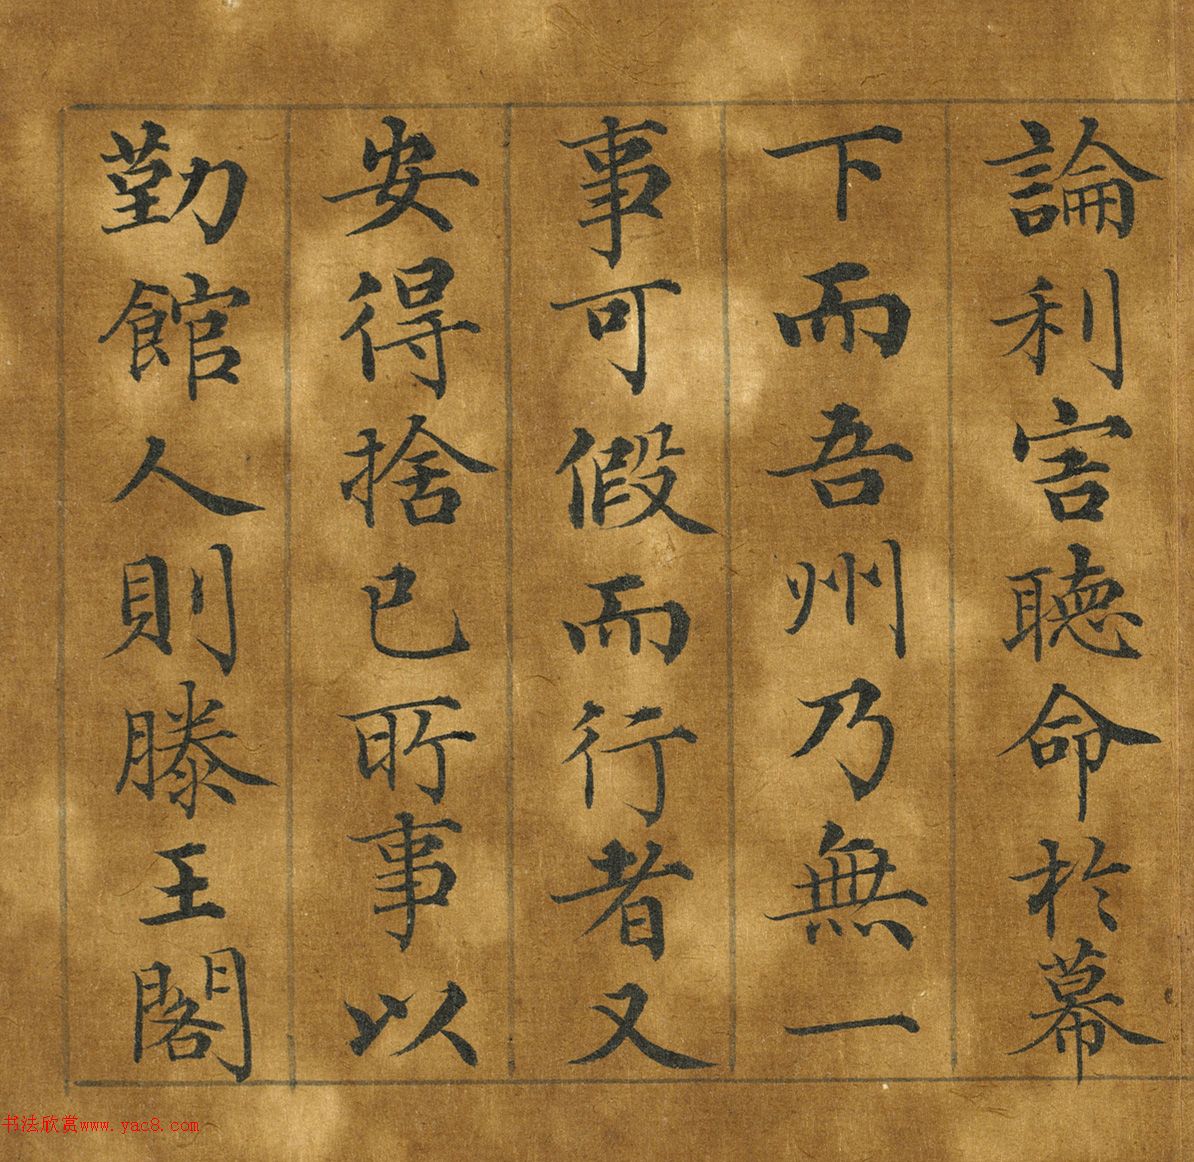 論利害聽命於幕
下而吾州乃無一
事可假而行者又
安得捨已所事以
勤館人則滕王閣
书法欣赏www.yac8.com